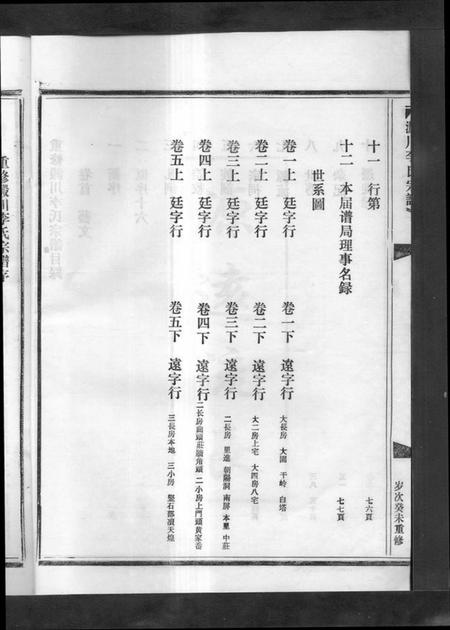 十一 行第 七六頁
十二 本届谱局理事名録 七七頁
世系圖
卷一上 廷字行 卷一下 遠字行 大長房 大園 千岭 白塔
卷二上 廷字行 卷二下 遠字行 大二房上宅 大四房八宅
卷三上 廷字行 卷三下 遠字行 二長房 里進 朝陽洞 南屏 本里 中莊
卷四上 廷字行 卷四下 遠字行 二長房 二小房上門頭黄家畲
卷五上 廷字行 卷五下 遠字行 三長房本地 三小房
岁次癸未重修
重修 川李氏宗譜序